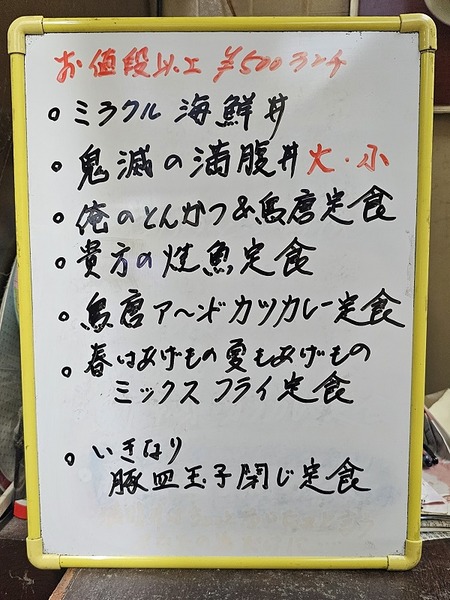 お値段以上 ¥500ランチ
○ ミラクル 海鮮丼
○ 鬼滅の満腹丼 大・小
○ 俺のとんかつ&鳥唐定食
○ 貴方の焼魚定食
○ 鳥唐ア〜ンド カツカレー定食
○ 春はあげもの夏もあげもの
ミックス フライ定食
○ いきなり
豚皿玉子閉じ定食